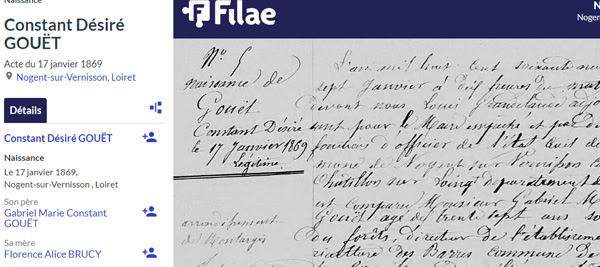 Naissance
Constant Désiré
GOUËT
Acte du 17 janvier 1869
Nogent-sur-Vernisson, Loiret
Détails
Constant Désiré GOUËT
Naissance
Le 17 janvier 1869,
Nogent-sur-Vernisson , Loiret
Son père
Gabriel Marie Constant
GOUËT
Sa mère
Florence Alice BRUCY
Filae
N
Nogen
No 5
naissance de
Gouët
Constant Désiré
le 17 Janvier 1869
légitime
arrondissement
de Montargis
L'an mil huit cent soixante neu
sept Janvier à dix heures du mat
devant nous Louis
sont pour le Maire empêché et par
fonctions d'officier de l'état civil de
mune de Nogent sur Vernisson
Châtillon sur Loing département de
est comparu Monsieur Gabriel M
Gouët âgé de trente sept ans
des forêts, Directeur de l'établisseme
des Barres Commune de